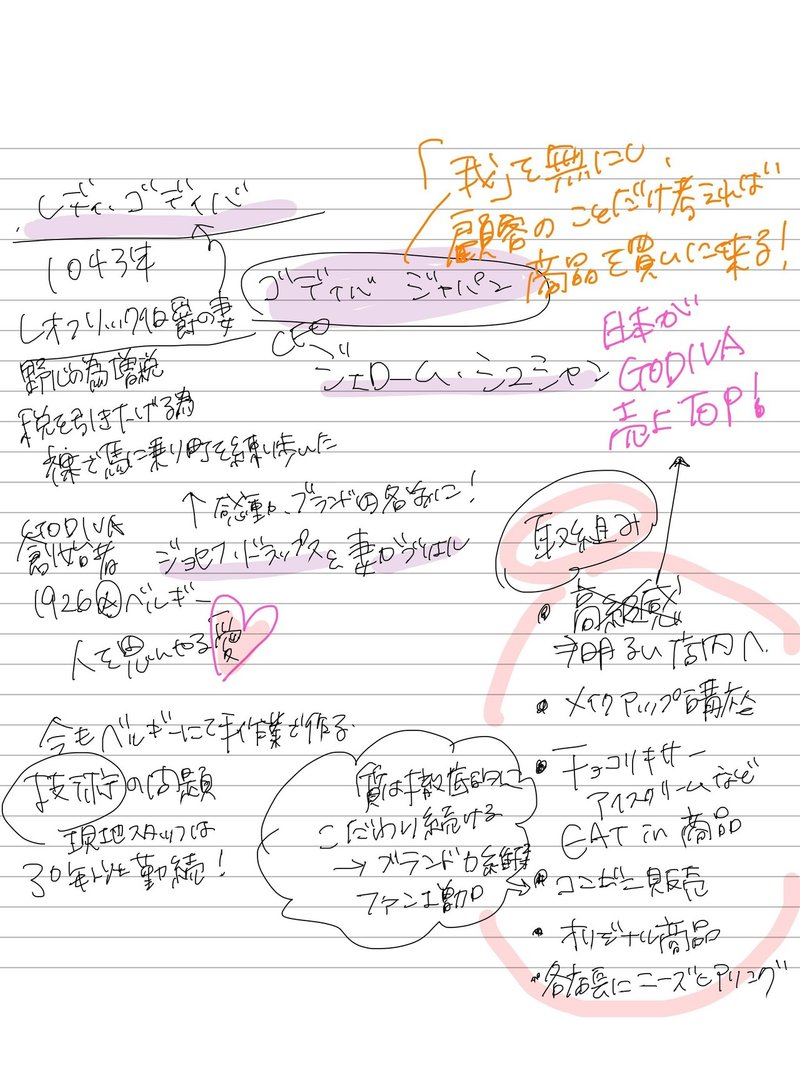 レディ・ゴディバ
1043年
レオフリック伯爵の妻
野心の為増税
税を引きさげる為
裸で馬に乗り町を練り歩いた
↑感動、ブランドの名前に!
GODIVA
創始者
ジョセフ・ドラップスと妻ガブリエル
1926 ベルギー
人を思いやる愛
今もベルギーにて手作業で作る
技術の問題
現地スタッフは
30年以上勤続!
「我」を無にし、
顧客のことだけ考えれば
商品を買いに来る!
ゴディバ ジャパン
CEO
ジェローム・シュシャン
日本が
GODIVA
売上TOP!
取組み
・高級感
⇒明るい店内へ
・メイクアップ講座
・チョコリキサー
アイスクリームなど
EAT in 商品
・コンビニ販売
・オリジナル商品
・各店長にニーズヒアリング
質は徹底的に
こだわり続ける
→ブランド力維持
ファン増加→